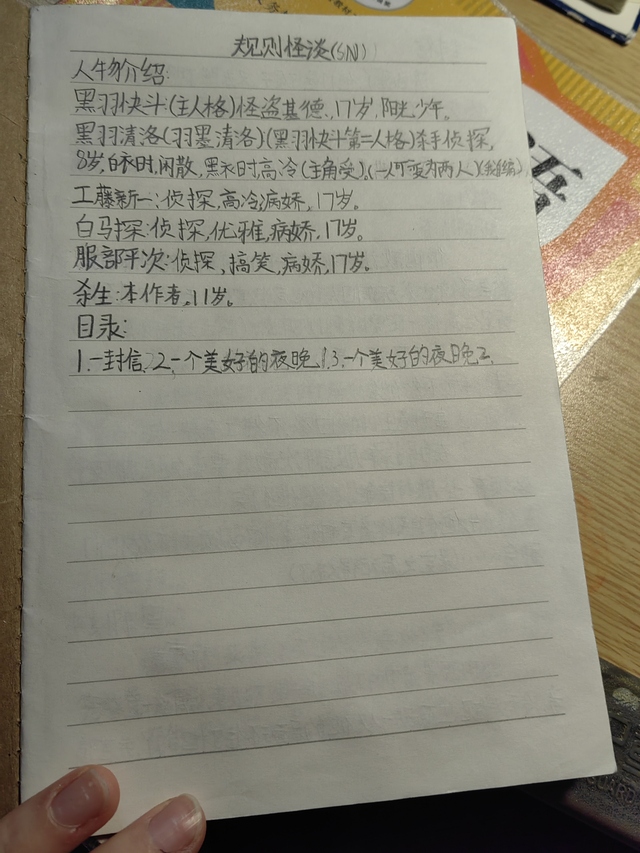 规则怪谈(SN)
人物介绍:
黑羽快斗(主人格)怪盗基德,17岁,阳光少年。
黑羽清洛(羽墨清洛)(黑羽快斗第二人格)杀手侦探,
8岁,白衣时,闲散,黑衣时高冷(主角受),(一人可变为两人)
工藤新一:侦探,高冷,病娇,17岁。
白马探:侦探,优雅,病娇,17岁。
服部平次:侦探,搞笑,病娇,17岁。
杀生:本作者,11岁。
目录:
1.一封信.2.一个美好的夜晚1.3.一个美好的夜晚2.
语